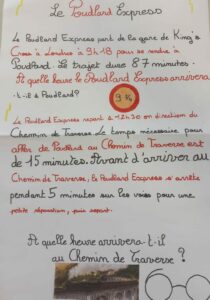 Le Poudlard Express
Le Poudlard Express part de la gare de King's
Cross à Londres à 9h18 pour se rendre à
Poudlard. Le trajet dure 87 minutes.
A quelle heure le Poudlard Express arrivera
-t-il à Poudlard?
9 ¾
Le Poudlard Express repart à 12h30 en direction du
Chemin de Traverse. Le temps nécessaire pour
aller de Poudlard au Chemin de Traverse est
de 15 minutes. Avant d'arriver au
Chemin de Traverse, le Poudlard Express s'arrête
pendant 5 minutes sur les voies pour une
petite réparation, puis repart.
A quelle heure arrivera-t-il
au Chemin de Traverse ?